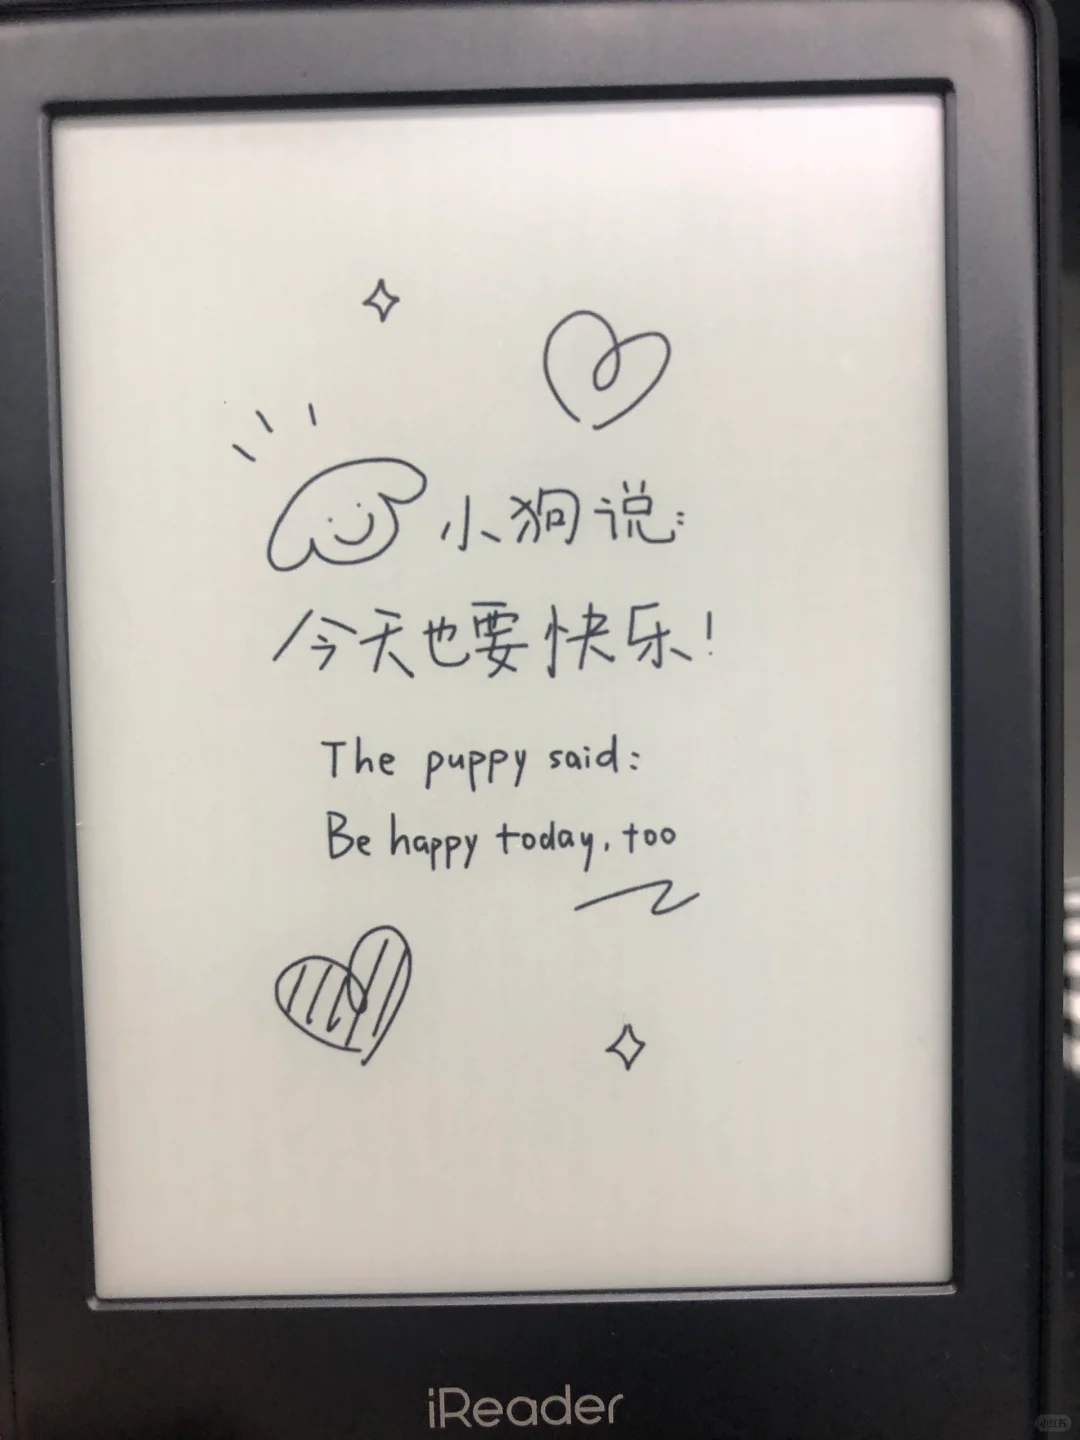 小狗说:
今天也要快乐!
The puppy said:
Be happy today, too
iReader
小红书